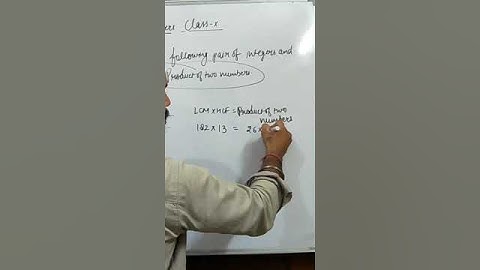 Class-X
following pair of integers and
Product of two numbers
LCM x HCF = Product of two
numbers
182 x 13 = 26 x